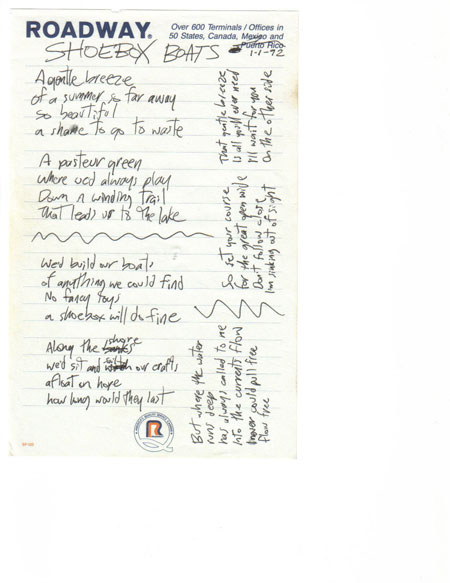 ROADWAY®
Over 600 Terminals / Offices in
50 States, Canada, Mexico and
Puerto Rico
SHOEBOX BOATS
1-1-92
A gentle breeze
of a summer so far away
So beautiful
a shame to go to waste
A pasteur green
where we'd always play
Down a winding trail
that leads us to the lake
We'd build our boats
of anything we could find
No fancy toys
a shoebox will do fine
Along the shore
we'd sit and our crafts
afloat on hope
how long would they last
But where the water
runs deep
has always called to me
Into the currents flow
I never could pull free
flow free
So set your course
for the great open wide
Don't follow close
I'm sinking out of sight
That gentle breeze
Is all you'll ever need
I'll wait for you
On the other side
R